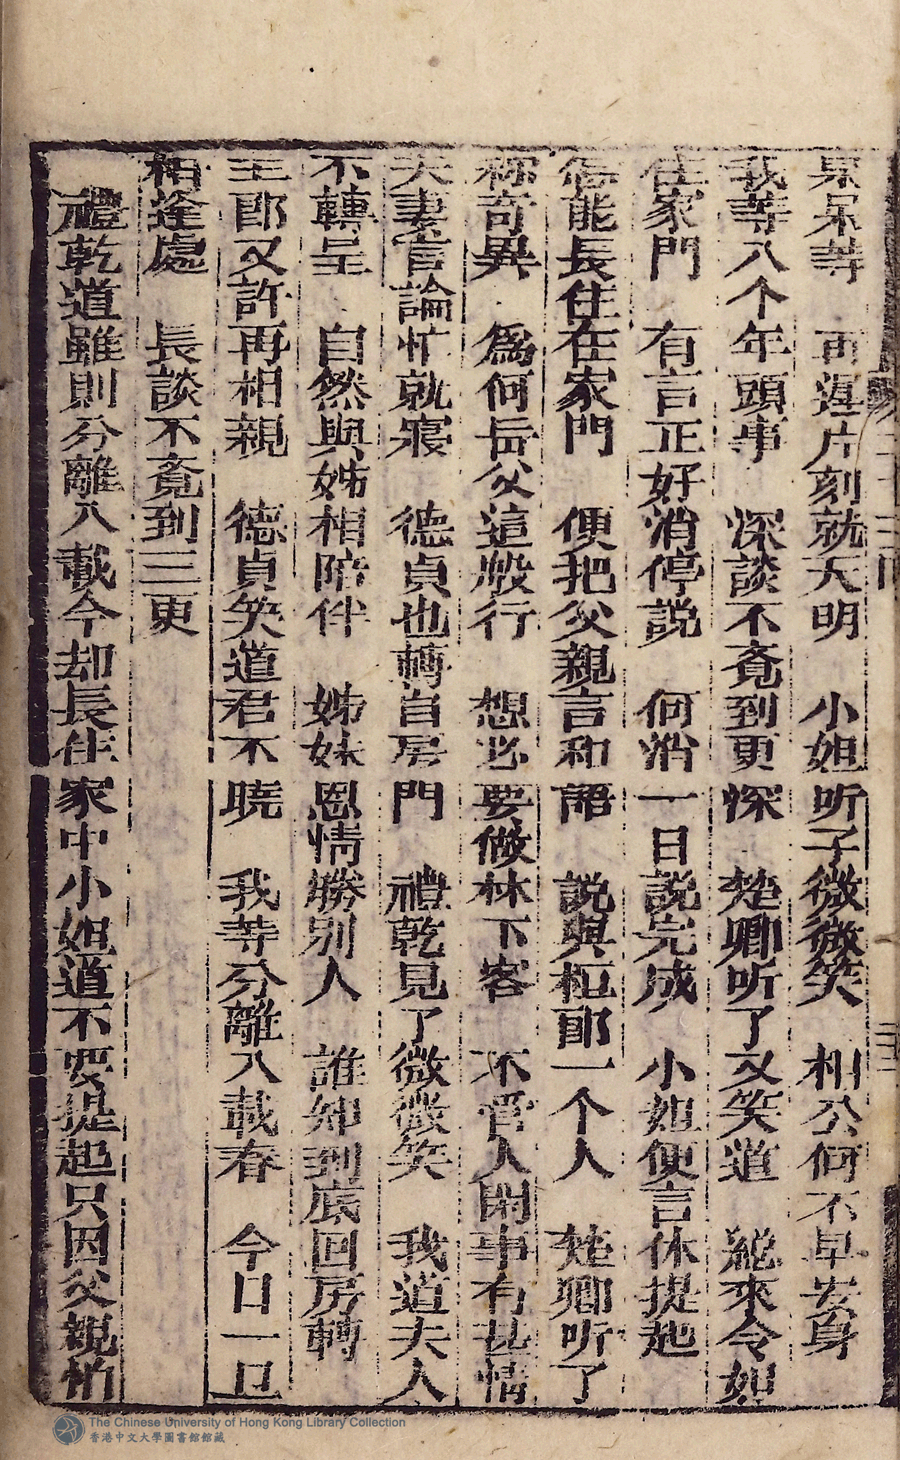 呆呆等 再遲片刻就天明 小姐听子微微笑 相公何不早安身
我等八个年頭事 深談不竟到更深 楚卿听了又笑道 総來令如
住家門 有言正好消停説 何消一日説完成 小姐便言休提起
怎能長住在家門 便把父親言和語 説與桓郎一个人 楚卿听了
称奇異 爲何岳父這般行 想必要做林下客 不管人閑事有甚情
夫妻言論忙就寢 德貞也轉自房門 禮乾見了微微笑 我道夫人
不轉呈 自然與姊相陪伴 姊妹恩情勝别人 誰知到底回房轉
王郎又許再相親 德貞笑道君不曉 我等分離八載春 今日一旦
相逢處 長談不竟到三更
禮乾道雖則分離八載今却長住家中小姐道不要提起只因父親怕
The Chinese University of Hong Kong Library Collection
香港中文大學圖書館館藏